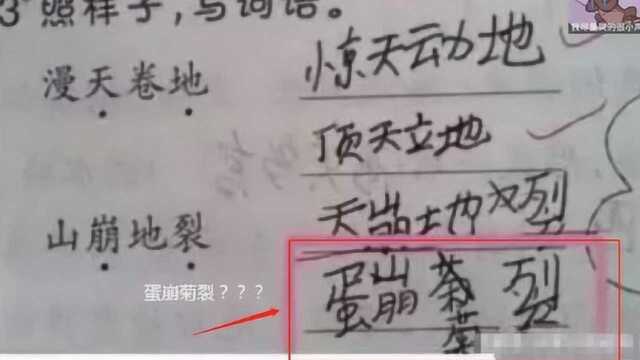 3 照样子,写词语。
漫天卷地 惊天动地
顶天立地
山崩地裂 天崩地裂
蛋崩菊裂???
蛋崩 裂